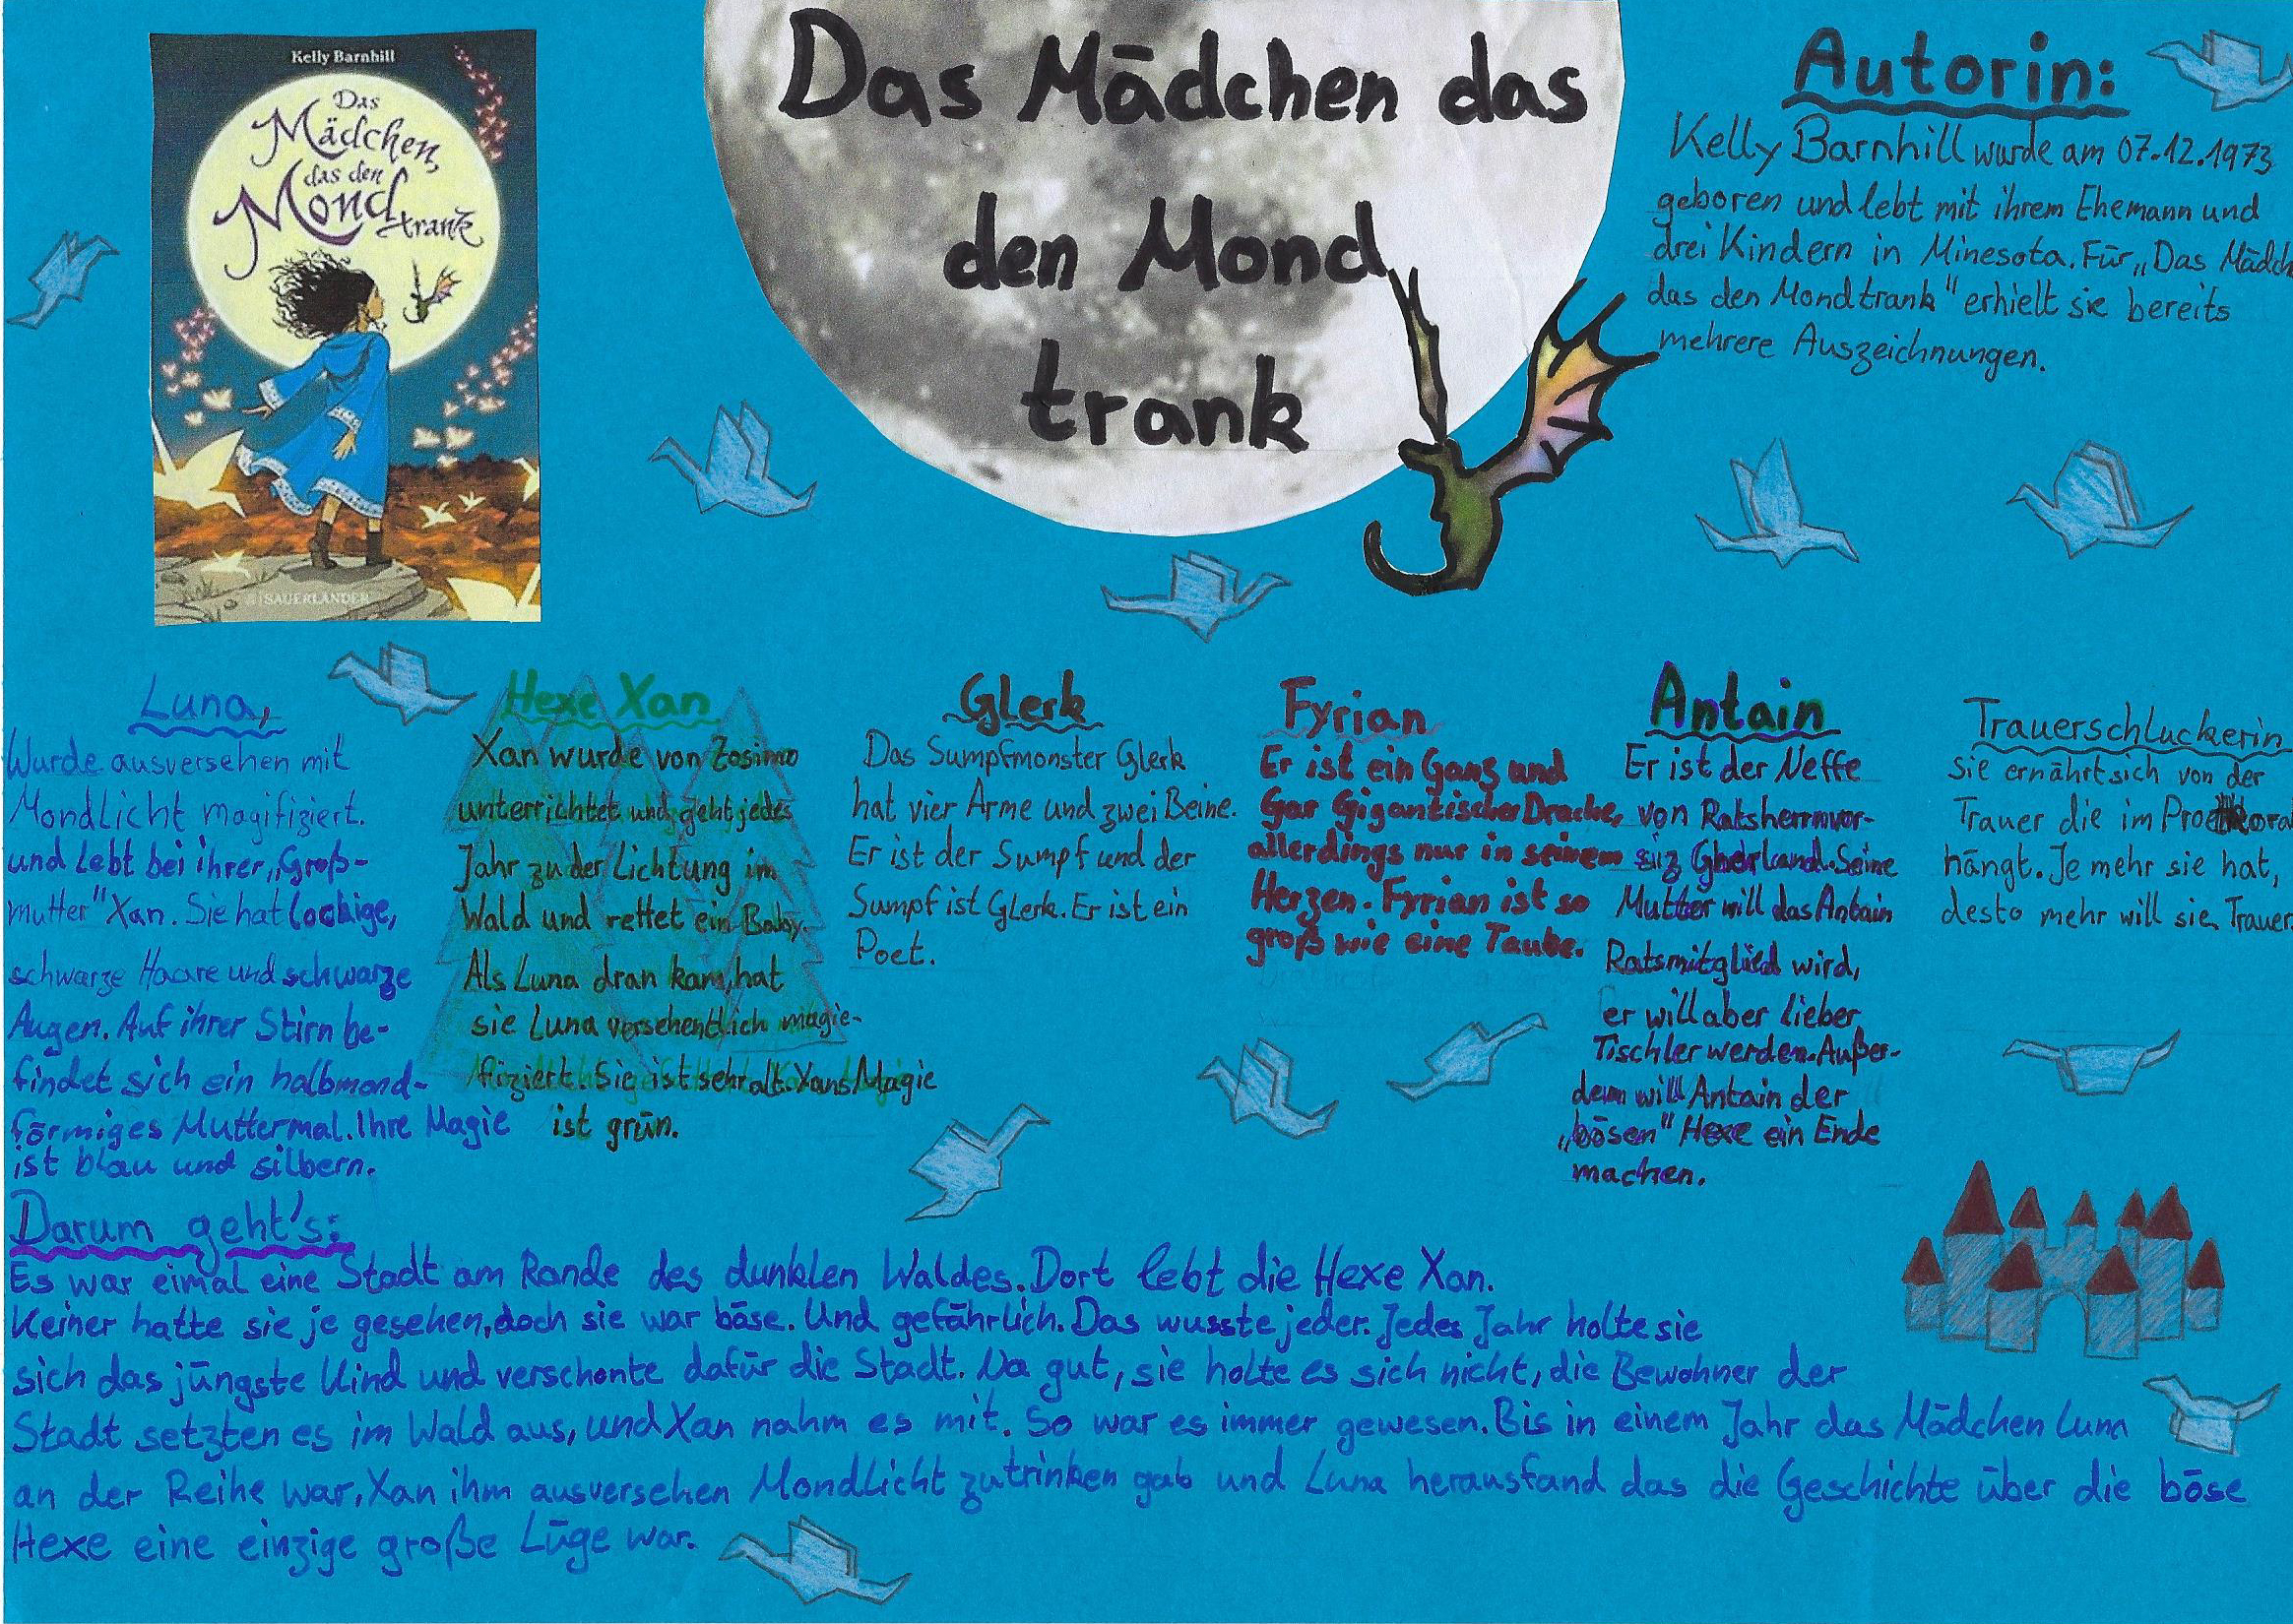 Kelly Barnhill
Das
Mädchen,
das den
Mond
trank
SAUERLÄNDER
Das Mädchen das
den Mond
trank
Autorin:
Kelly Barnhill wurde am 07.12.1973
geboren und lebt mit ihrem Ehemann und
drei Kindern in Minesota. Für „Das Mädch
das den Mond trank" erhielt sie bereits
mehrere Auszeichnungen.
Luna,
Wurde ausversehen mit
Mondlicht magifiziert.
und Lebt bei ihrer „Groß-
mutter" Xan. Sie hat lockige,
schwarze Haare und schwarze
Augen. Auf ihrer Stirn be-
findet sich ein halbmond-
förmiges Muttermal. Ihre Magie
ist blau und silbern.
Hexe Xan
Xan wurde von Zosimo
unterrichtet und geht jedes
Jahr zu der Lichtung im
Wald und rettet ein Baby.
Als Luna dran kam, hat
sie Luna versehentlich magie-
fiziert. Sie ist sehr alt. Xans Magie
ist grün.
Glerk
Das Sumpfmonster Glerk
hat vier Arme und zwei Beine.
Er ist der Sumpf und der
Sumpf ist Glerk. Er ist ein
Poet.
Fyrian
Er ist ein Ganz und
Gar Gigantischer Drache,
allerdings nur in seinem
Herzen. Fyrian ist so
groß wie eine Taube.
Antain
Er ist der Neffe
von Ratsherrnvor-
siz Gherland. Seine
Mutter will das Antain
Ratsmitglied wird,
er will aber lieber
Tischler werden. Außer-
dem will Antain der
„bösen" Hexe ein Ende
machen.
Trauerschluckerin
sie ernährt sich von der
Trauer die im
hängt. Je mehr sie hat,
desto mehr will sie Trauer.
Darum geht's:
Es war eimal eine Stadt am Rande des dunklen Waldes. Dort lebt die Hexe Xan.
Keiner hatte sie je gesehen, doch sie war böse. Und gefährlich. Das wusste jeder. Jedes Jahr holte sie
sich das jüngste Kind und verschonte dafür die Stadt. Na gut, sie holte es sich nicht, die Bewohner der
Stadt setzten es im Wald aus, und Xan nahm es mit. So war es immer gewesen. Bis in einem Jahr das Mädchen Luna
an der Reihe war, Xan ihm ausversehen Mondlicht zutrinken gab und Luna herausfand das die Geschichte über die böse
Hexe eine einzige große Lüge war.